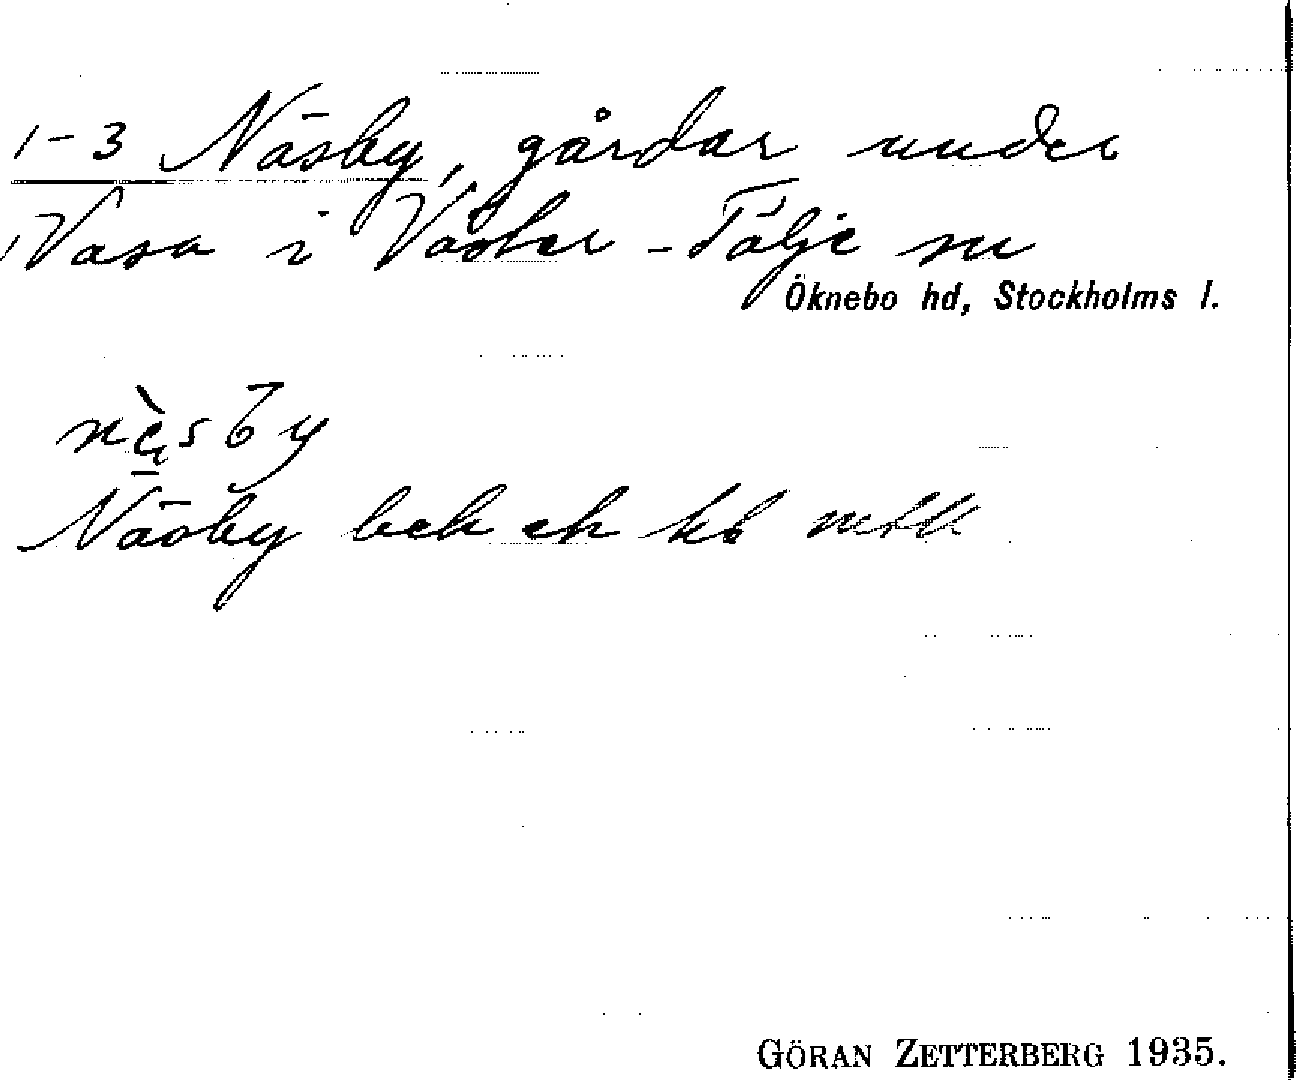 1-3 Näsby, gårdar under
Vasa i Väster-Tälje sn
Öknebo hd, Stockholms l.
nè̱sby
Näsby bek ek kb mtlk
GÖRAN ZETTERBERG 1935.